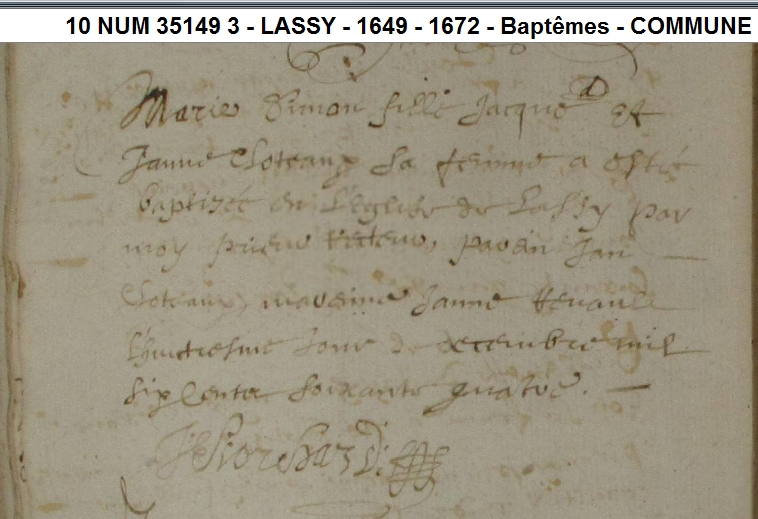 10 NUM 35149 3 - LASSY - 1649 - 1672 - Baptêmes - COMMUNE
Marie Simon fille Jacque et
Janne Choteaux sa femme a esté
baptizée en L'eglise de Lassy par
moy prieur recteur, parain Jan
Choteaux, maraine Janne Renault
L'huictiesme Jour de decembre mil
six Cents soixante quatre.